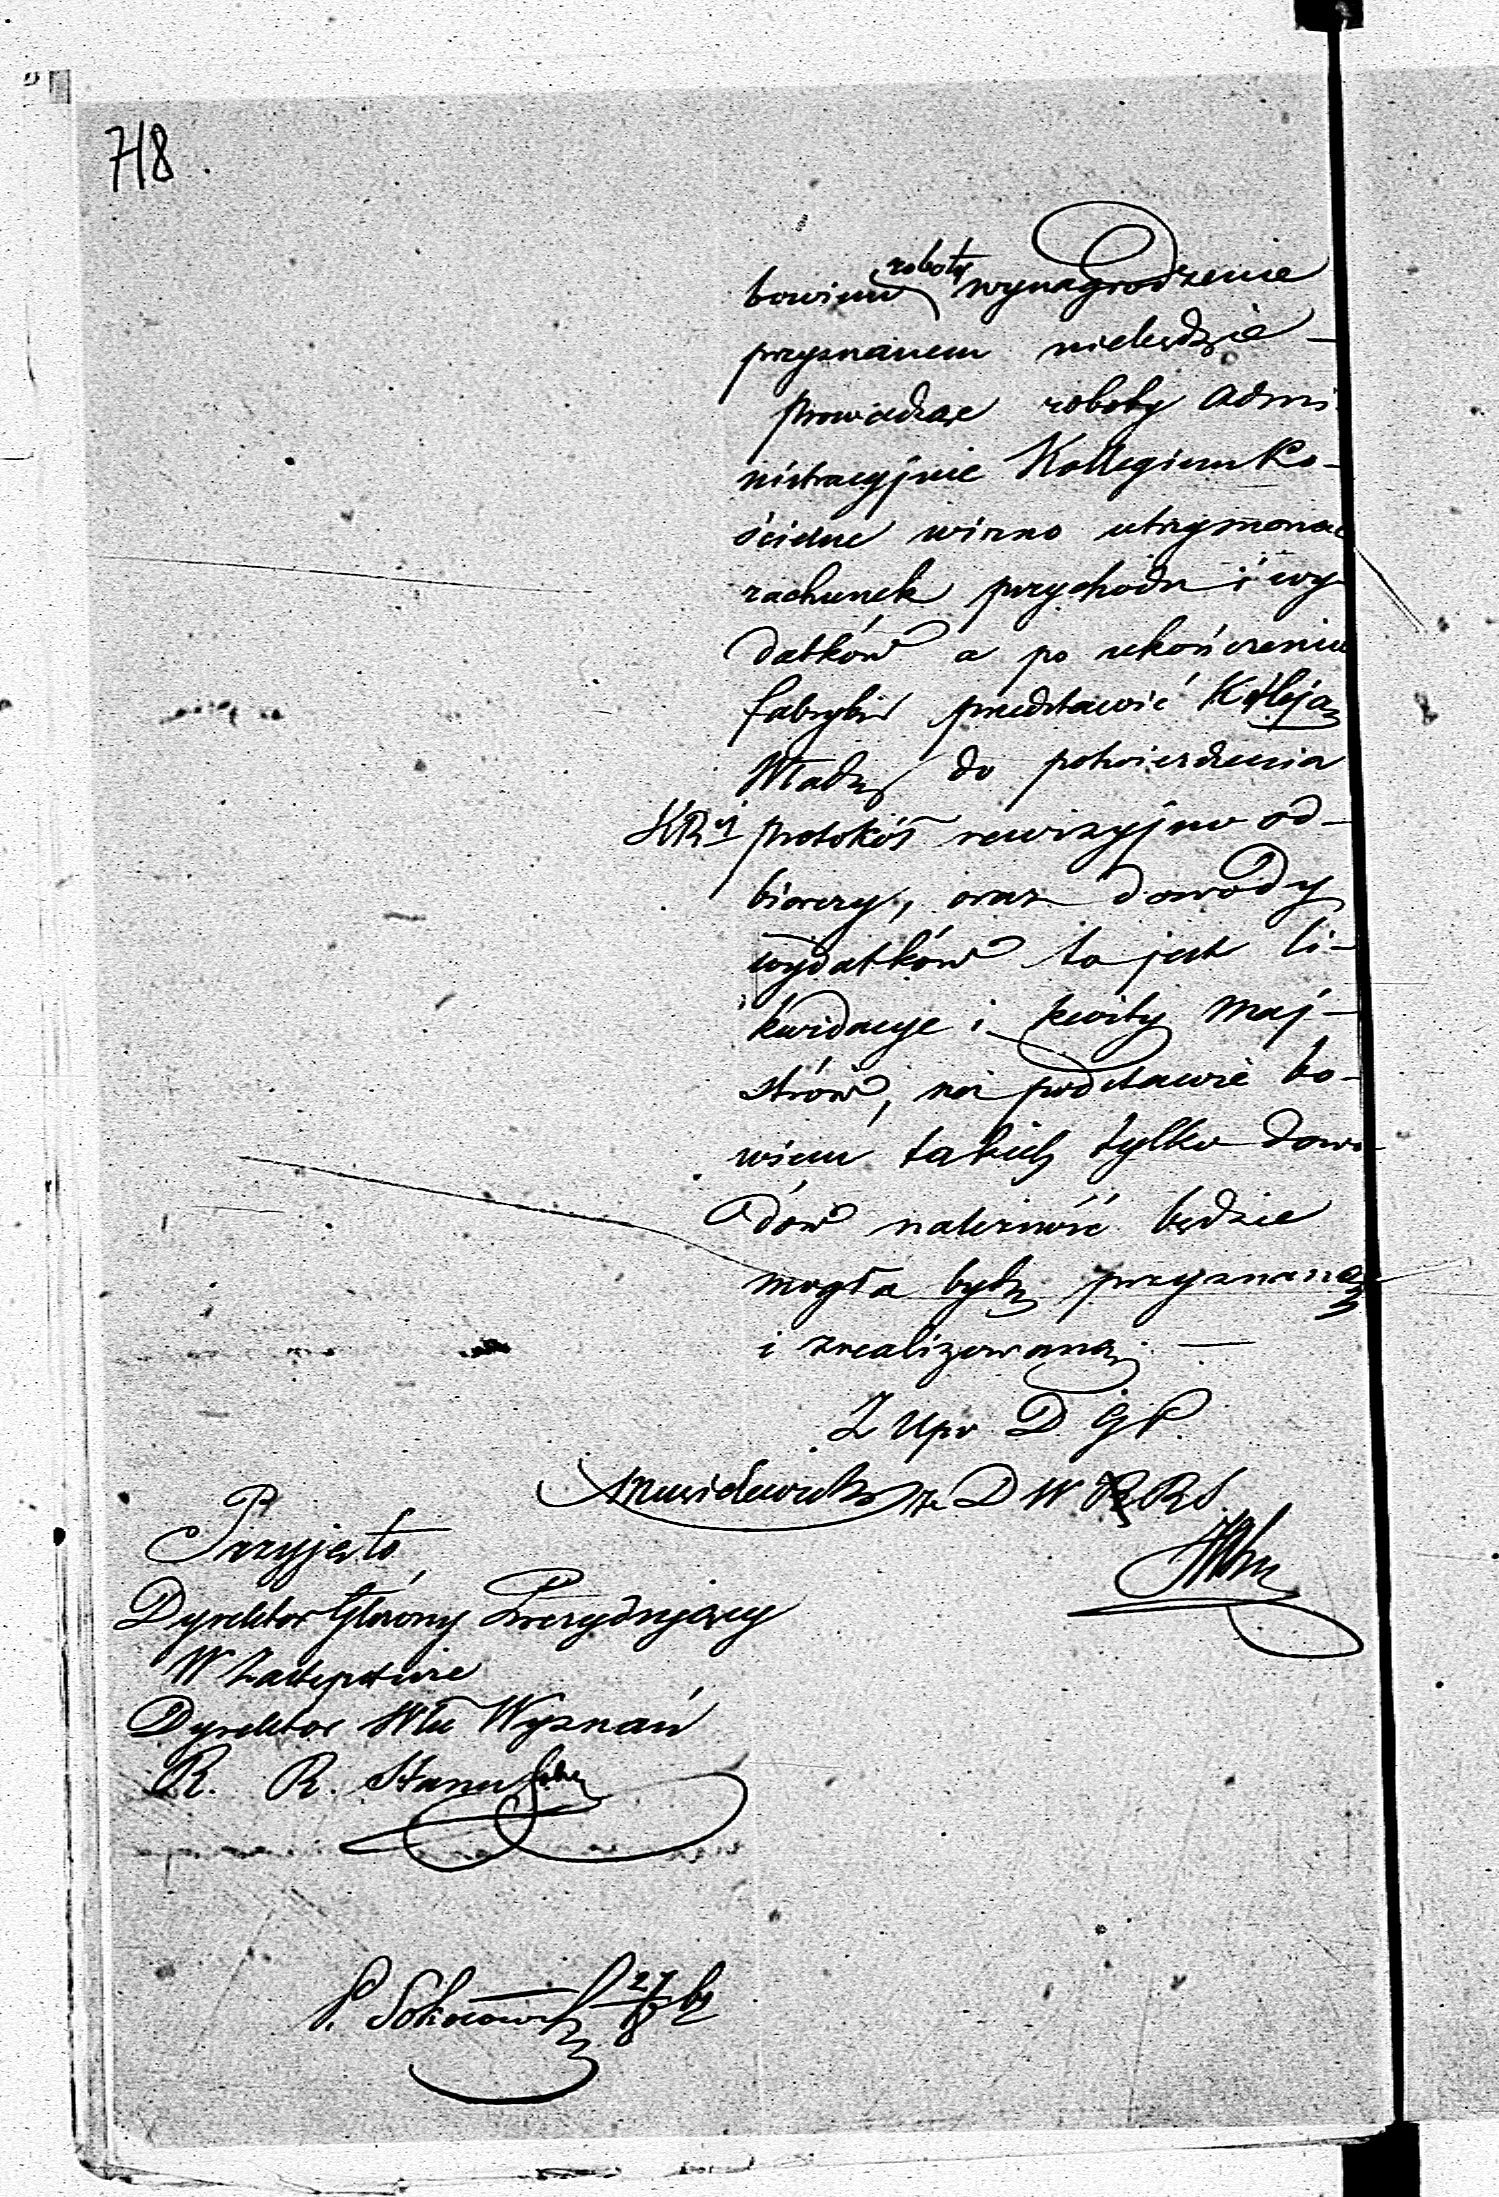 718.
bowiem roboty wynagrodzenie
przyznanem niebędzie —
Prowadząc roboty admi
nistracyjnie Kollegium Ko-
ścielne winno utrzymować
rachunek przychodu i wy
datków a po ukończeniu
fabryki przedstawić
Władzy do potwierdzenia
protokół rewizyjno od-
biorczy, oraz dowody
wydatków to jest li-
kwidacye i kwity maj-
strów, na podstawie bo-
wiem takich tylko dowo
dów należność będzie
mogła bydź przyznaną
i zrealizowaną. —
Z upr D. G P.
D W R S
Przyjęto
Dyrektor Główny Prezydujący
W Zastępstwie
Dyrektor Włu Wyznań
R. R. Stanu
P. Sokołowski 27/8